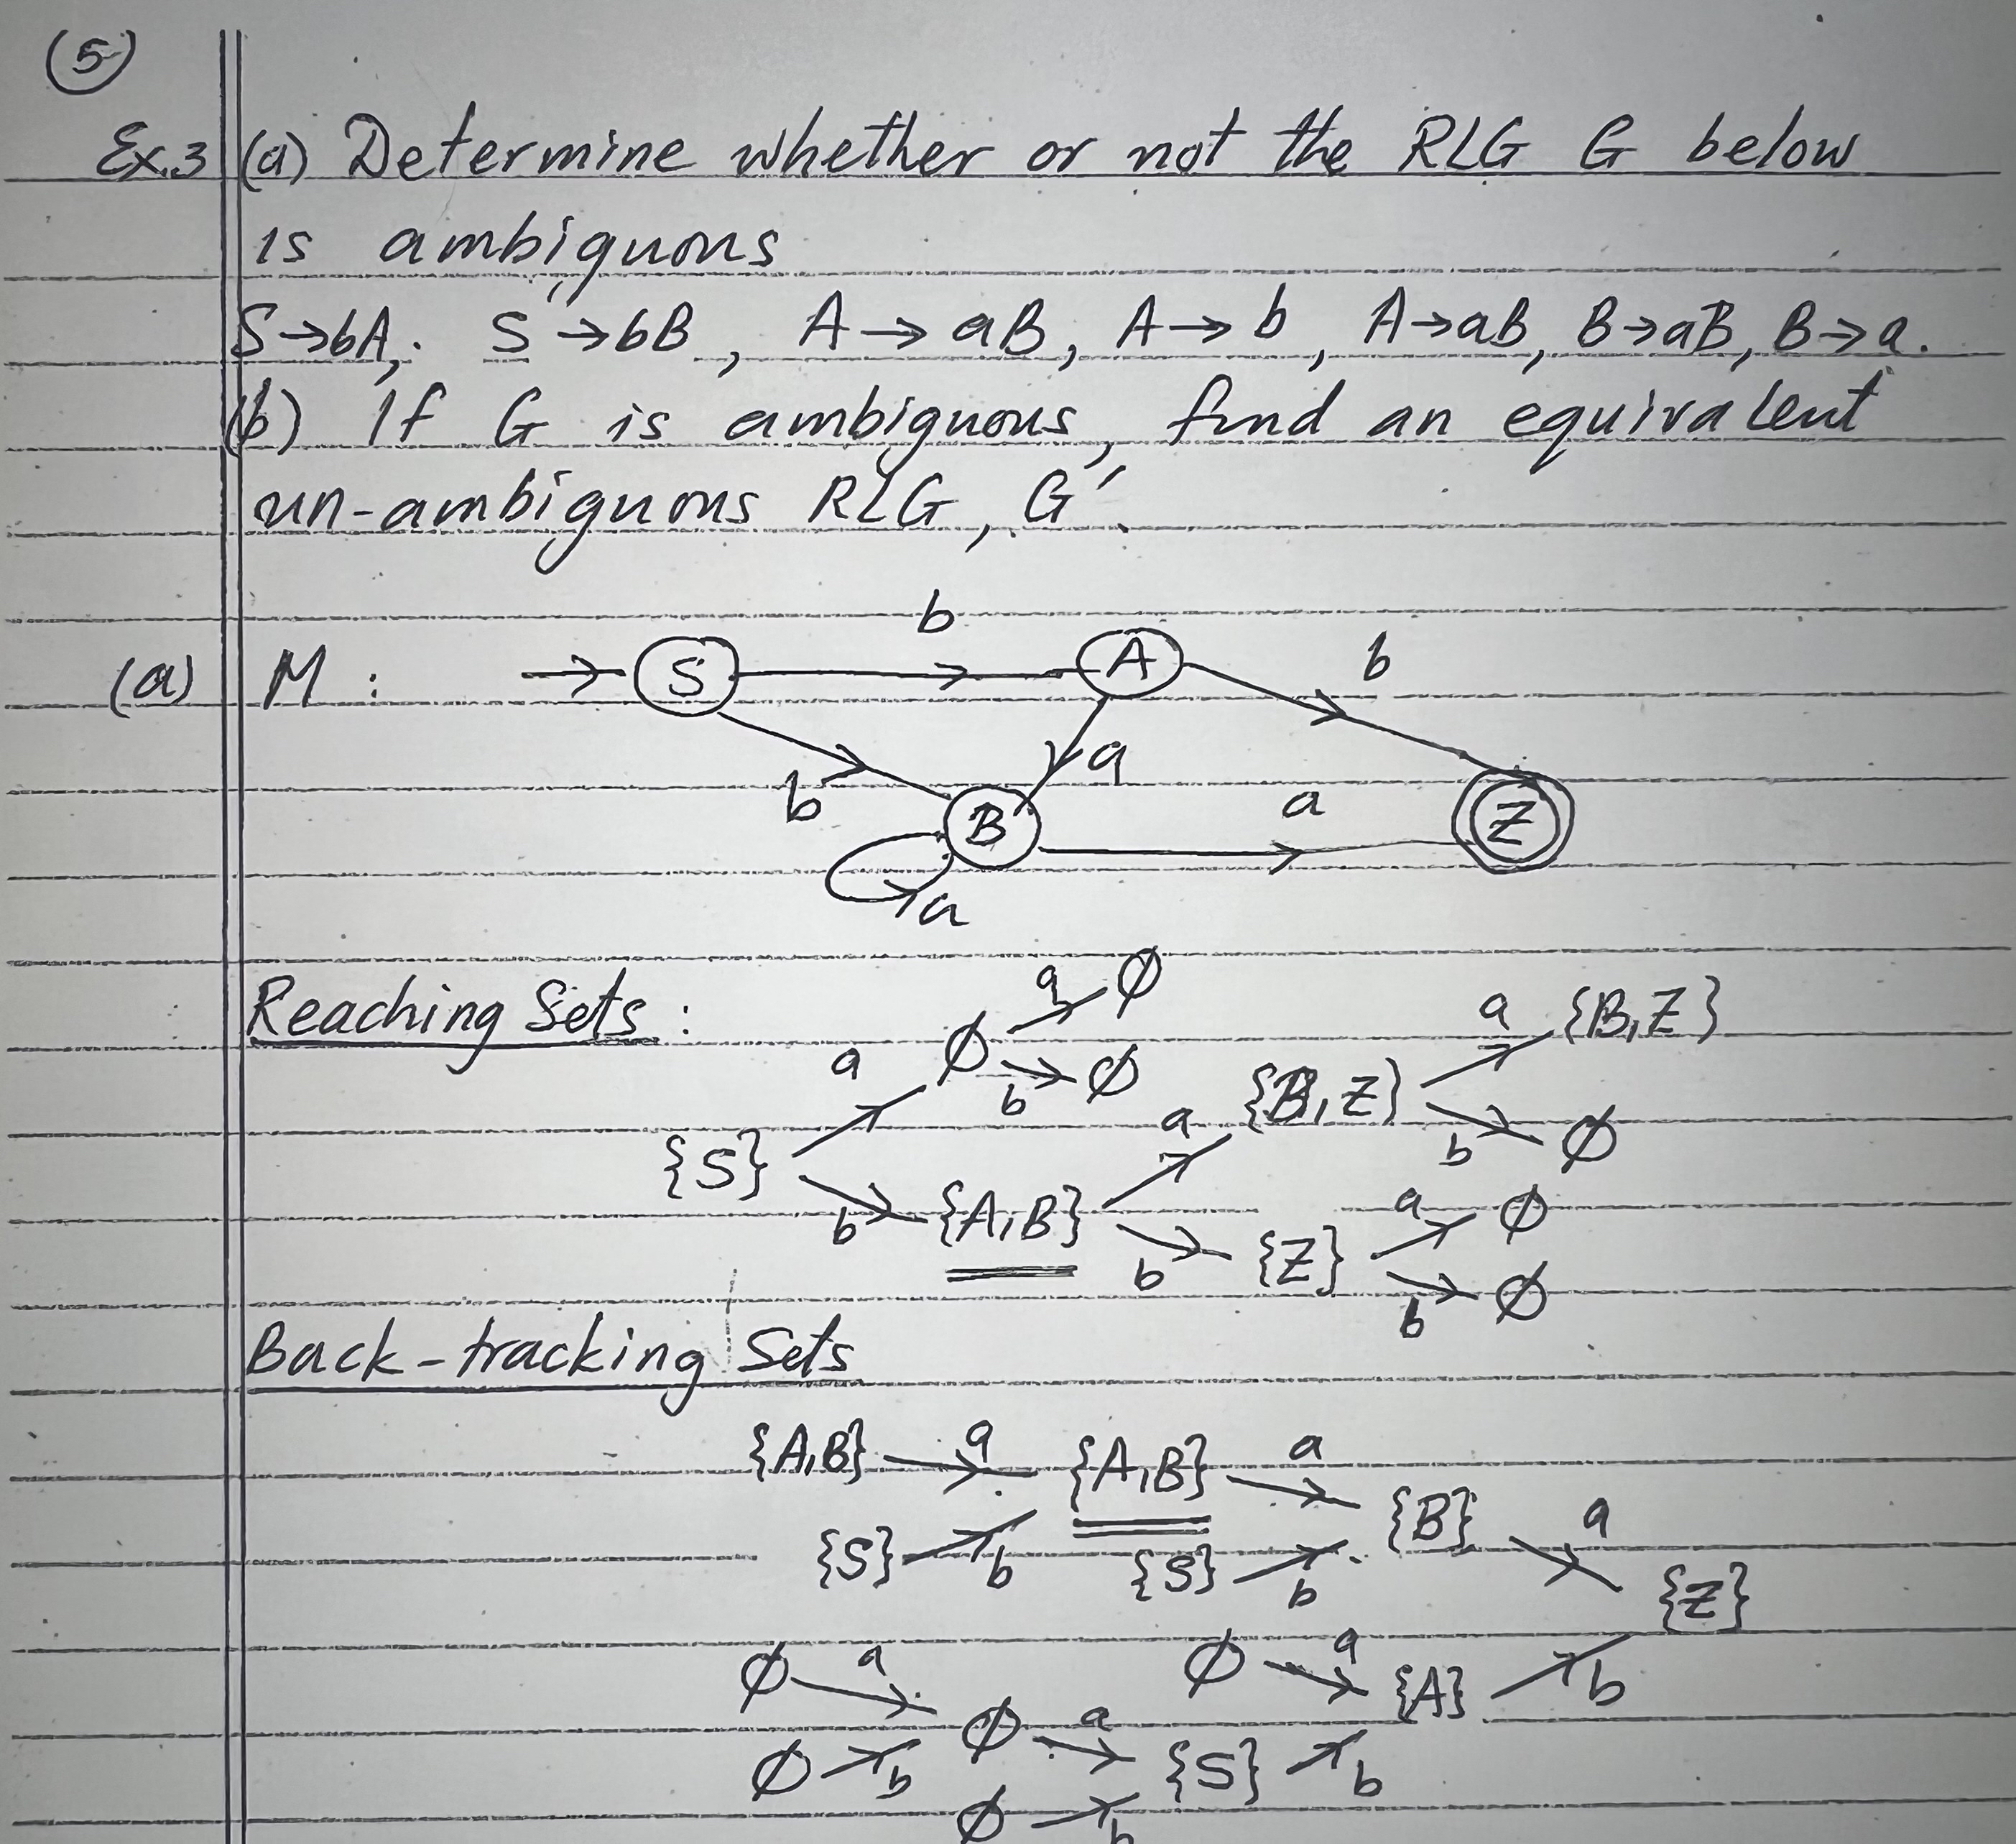 (5)
Ex.3 (a) Determine whether or not the RLG G below
is ambiguous
S→bA, S→bB, A→aB, A→b, A→aB, B→aB, B→a.
(b) If G is ambiguous, find an equivalent
un-ambiguous RLG, G'.
(a) M : → S b A b
b a B a Z
a
Reaching Sets :
a ∅
a ∅ b ∅ a {B,Z}
{S} a {B,Z} b ∅
b {A,B} b {Z} a ∅
b ∅
Back-tracking Sets
{A,B} a {A,B} a
{S} b {S} b {B} a
{Z}
∅ a ∅ a {A} b
∅ b ∅ a {S} b
∅ b